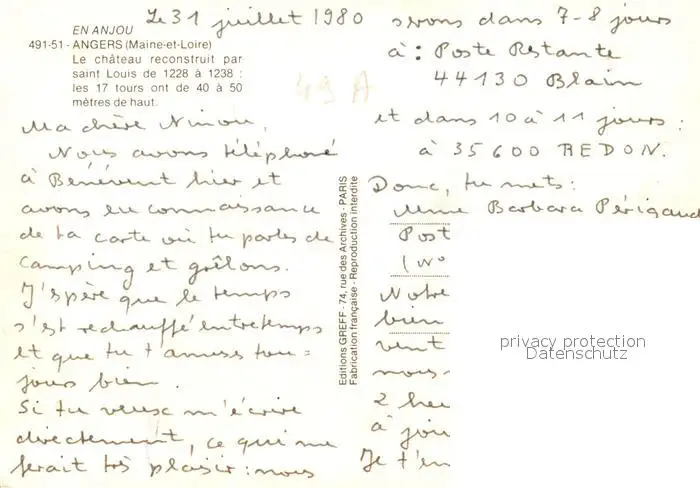 Le 31 juillet 1980
EN ANJOU
491-51 - ANGERS (Maine-et-Loire)
Le château reconstruit par
saint Louis de 1228 à 1238 :
les 17 tours ont de 40 à 50
mètres de haut.
49 A
Ma chère Ninou,
Nous avons téléphoné
à Bénévent hier et
avons eu connaissance
de ta carte où tu parles de
camping et grêlons.
J'espère que le temps
s'est rechauffé entretemps
et que tu t'amuses tou=
jours bien.
Si tu veux m'écrire
directement, ce qui me
ferait très plaisir : nous
Editions GREFF - 74, rue des Archives - PARIS
Fabrication française - Reproduction interdite
serons dans 7-8 jours
à : Poste Restante
44130 Blain
et dans 10 à 11 jours :
à 35600 REDON.
Donc, tu mets :
Mme Barbara Périgaud
Post
Notre
bien
vent
nous-
2 heu
à jou
Je t'en
privacy protection
Datenschutz